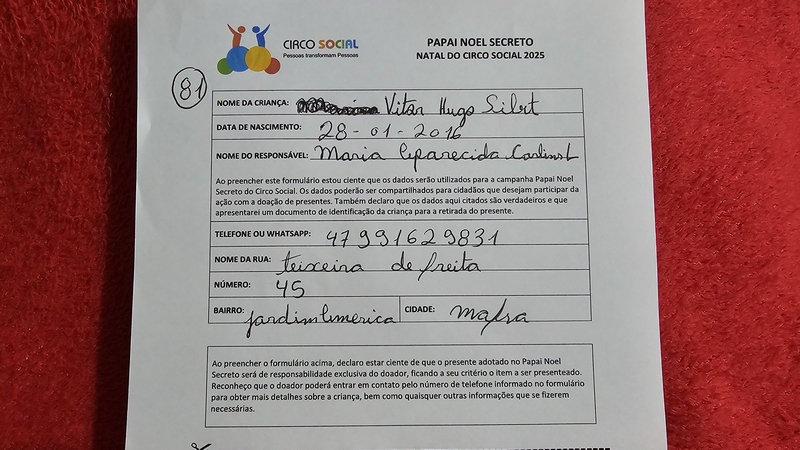 CIRCO SOCIAL
Pessoas transformam Pessoas
PAPAI NOEL SECRETO
NATAL DO CIRCO SOCIAL 2025
81
NOME DA CRIANÇA: Vitor Hugo
DATA DE NASCIMENTO: 28-01-2016
NOME DO RESPONSÁVEL: Maria Aparecida
Ao preencher este formulário estou ciente que os dados serão utilizados para a campanha Papai Noel
Secreto do Circo Social. Os dados poderão ser compartilhados para cidadãos que desejam participar da
ação com a doação de presentes. Também declaro que os dados aqui citados são verdadeiros e que
apresentarei um documento de identificação da criança para a retirada do presente.
TELEFONE OU WHATSAPP: 47991629831
NOME DA RUA: teixeira de freita
NÚMERO: 45
BAIRRO: jardim america CIDADE: mafra
Ao preencher o formulário acima, declaro estar ciente de que o presente adotado no Papai Noel
Secreto será de responsabilidade exclusiva do doador, ficando a seu critério o item a ser presenteado.
Reconheço que o doador poderá entrar em contato pelo número de telefone informado no formulário
para obter mais detalhes sobre a criança, bem como quaisquer outras informações que se fizerem
necessárias.